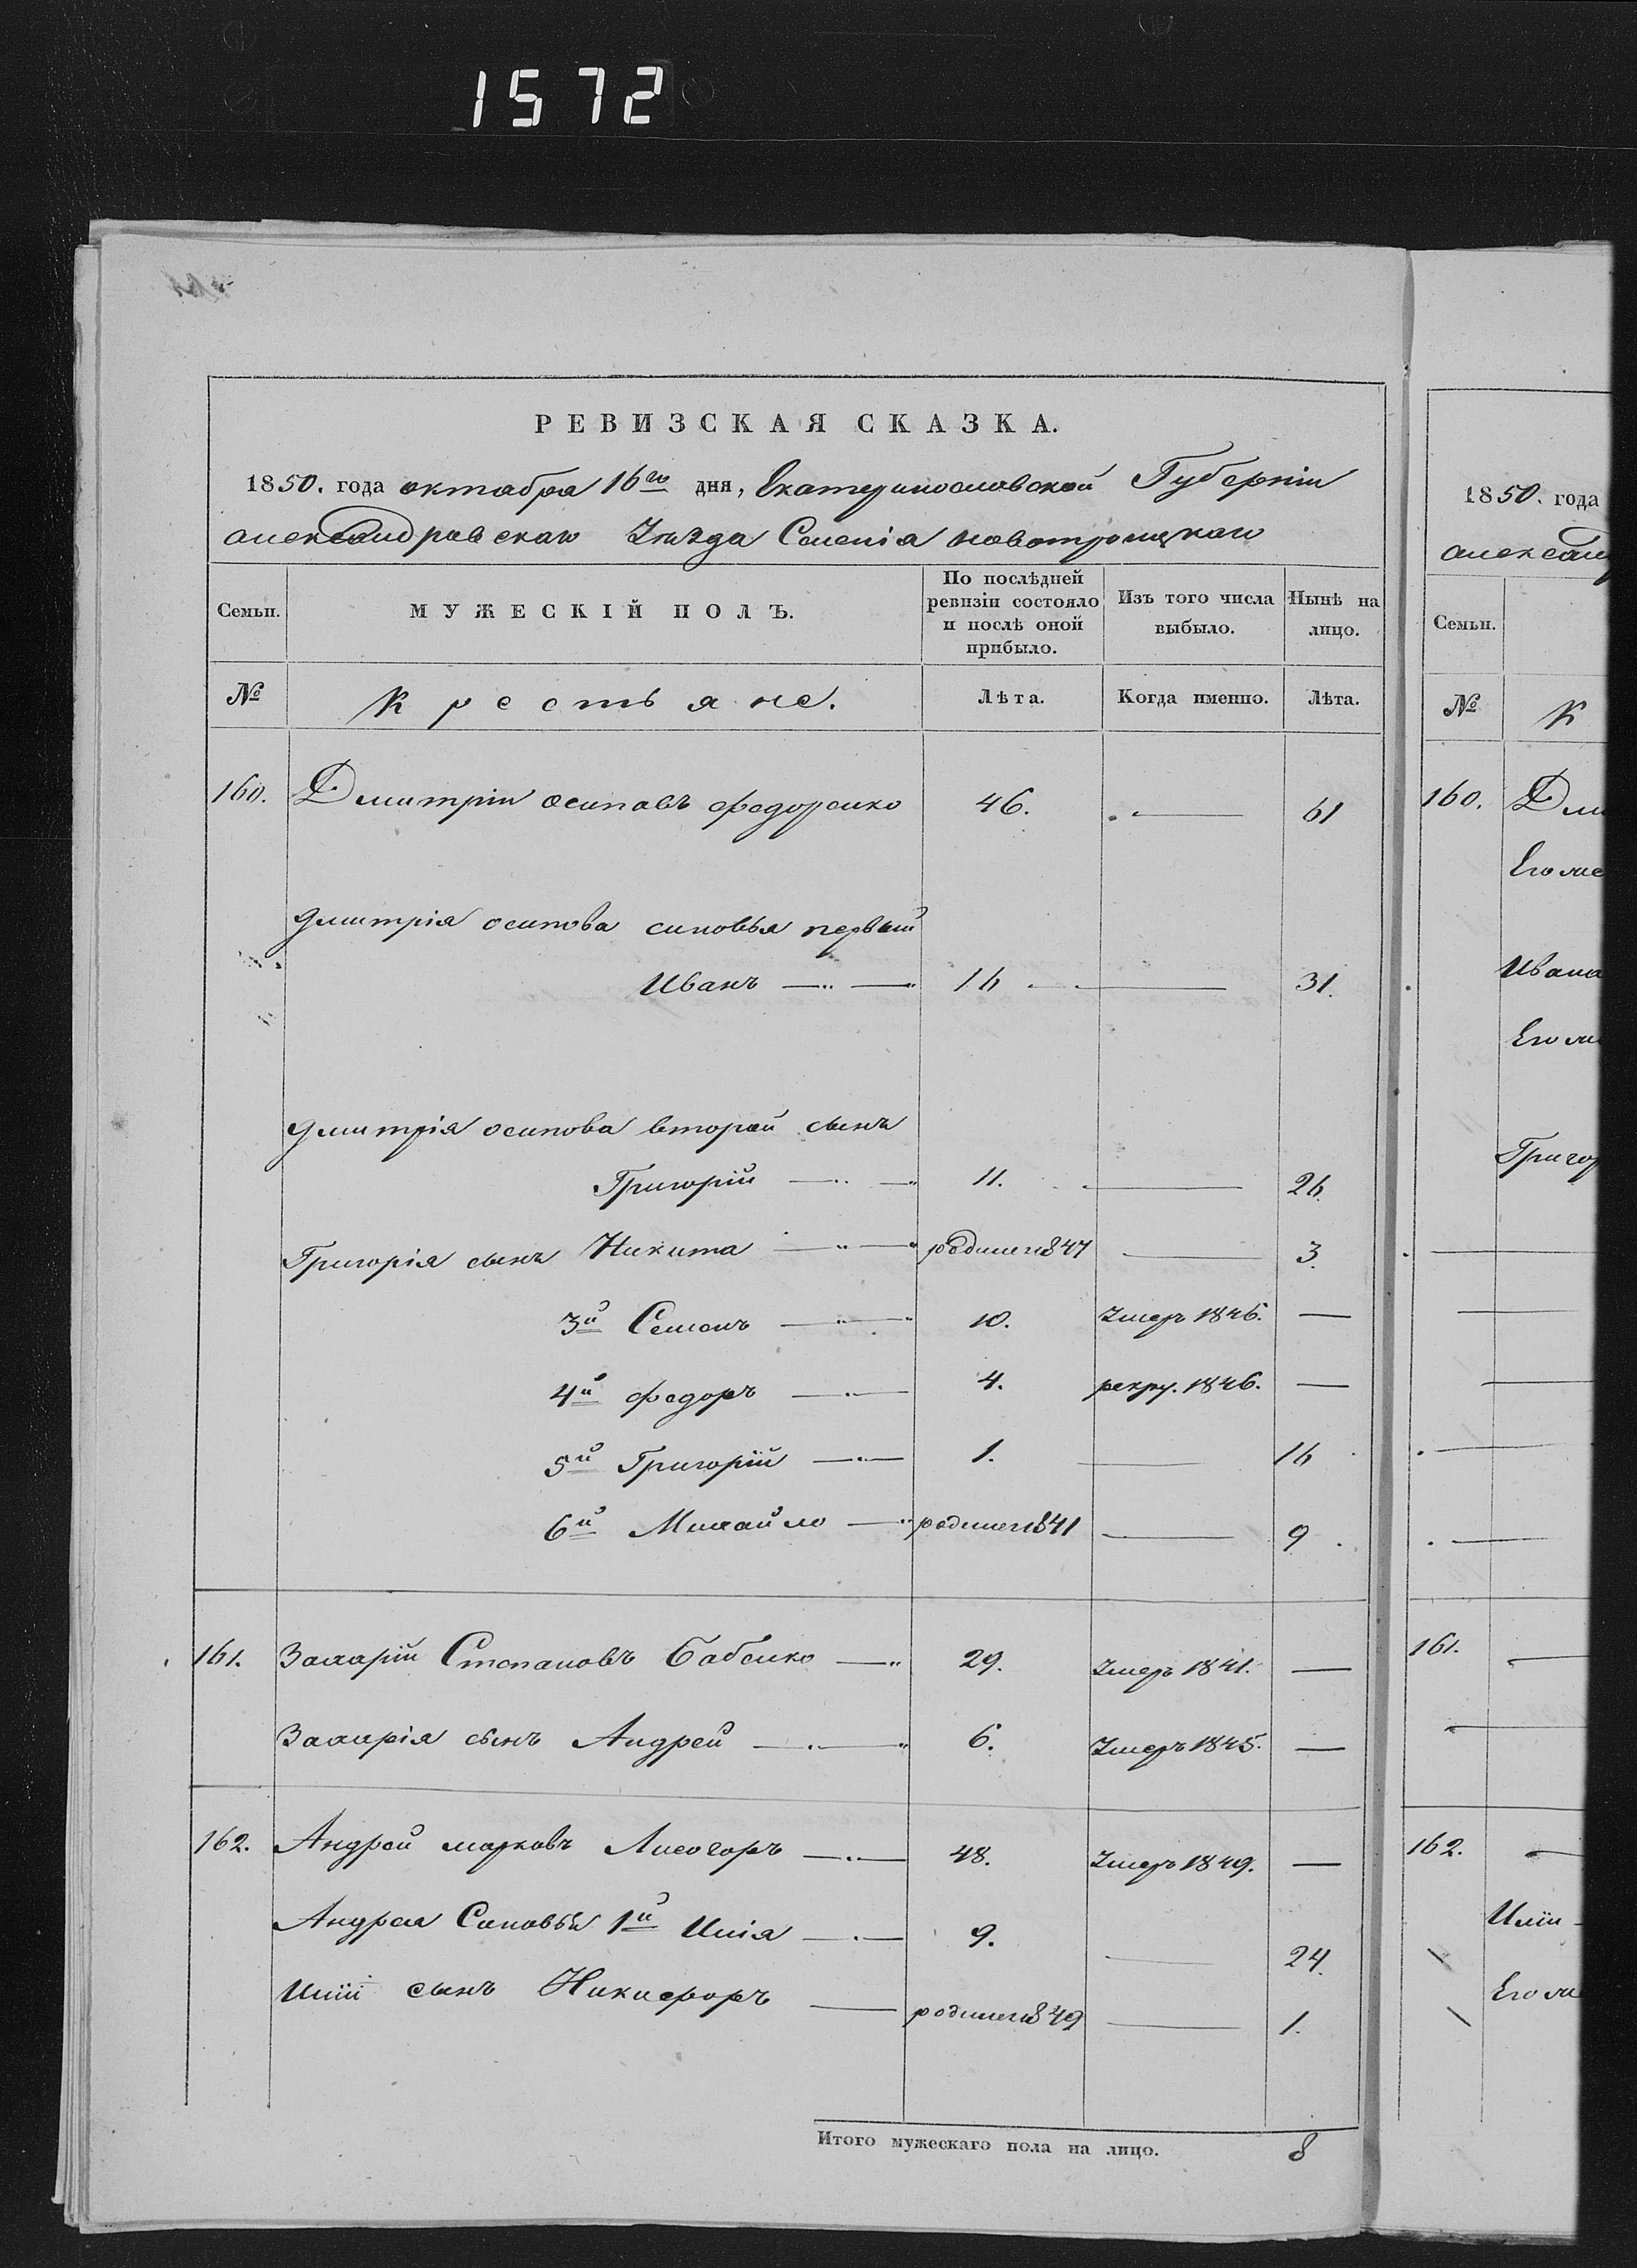 1572
РЕВИЗСКАЯ СКАЗКА.
1850. года октабра 16го дня, Екатеринославской Губерніи
александровскаго Уезда Селенія новотроицкаго
Семьи. МУЖЕСКІЙ ПОЛЪ. По послѣдней ревизіи состояло и послѣ оной прибыло. Изъ того числа выбыло. Нынѣ на лицо.
№ Крестьяне. Лѣта. Когда именно. Лѣта.
160. Дмитрій осиповъ федоренко 46. — 61
дмитрія осипова синовья первый
Иванъ — 16 — 31.
дмитрія осипова второй сынъ
Григорій — 11. — 26.
Григорія сынъ Никита — родился 1847 — 3.
3й Семенъ — 10. Умеръ 1846. —
4й федоръ — 4. рекру. 1846. —
5й Григорій — 1. — 16
6й Михайло — родился 1841 — 9
161. Захарій Степановъ Бабенко — 29. Умеръ 1841. —
Захарія сынъ Андрей — 6. Умеръ 1845. —
162. Андрей марковъ Лисогоръ — 48. Умеръ 1849. —
Андрея Синовья 1й Илія — 9. — 24.
Иліи сынъ Никифоръ — родился 1849 — 1.
Итого мужескаго пола на лицо. 8
1850. года
Семьи.
№ К
160.
Ивана
161.
162.
Иліи